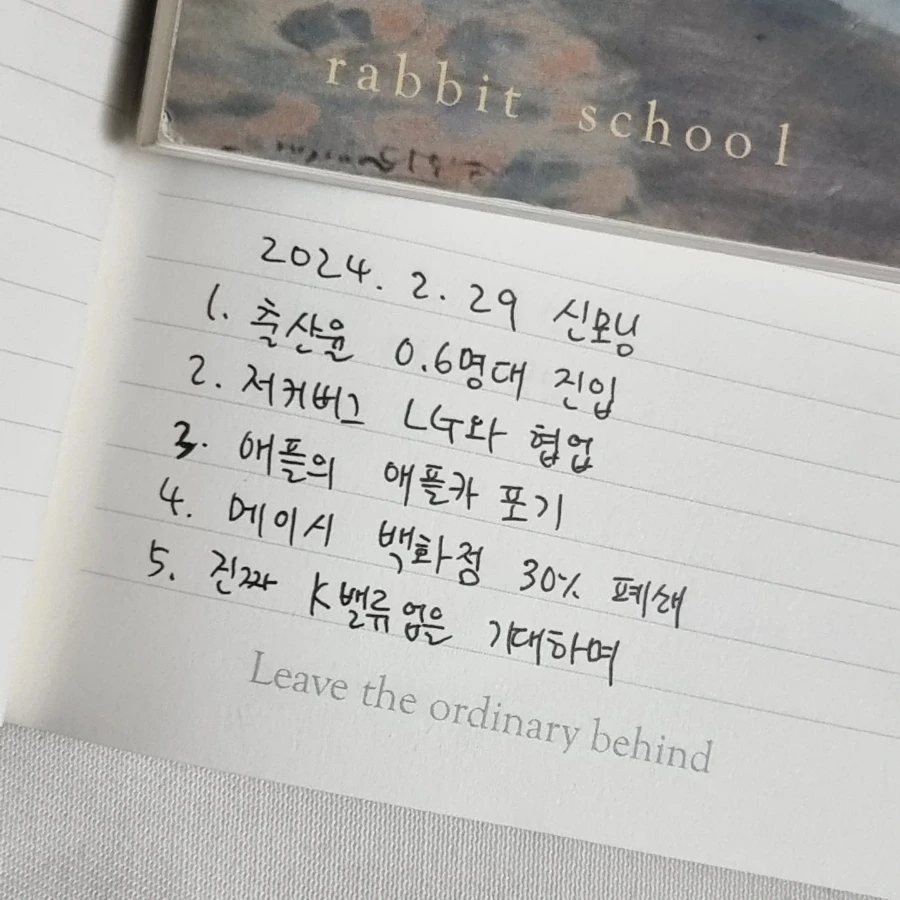 rabbit school
2024. 2. 29 신모닝
1. 출산율 0.6명대 진입
2. 저커버그 LG와 협업
3. 애플의 애플카 포기
4. 메이시 백화점 30% 폐쇄
5. 진짜 K밸류업을 기대하며
Leave the ordinary behind